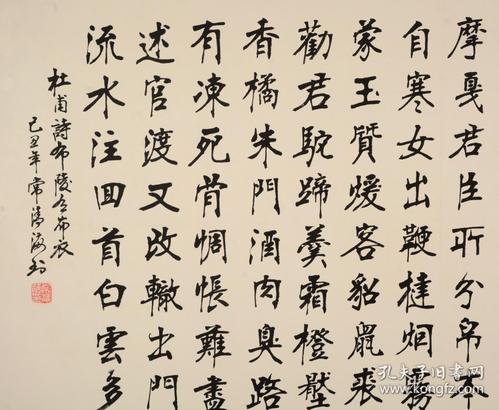 摩戛君臣所分帛本
自寒女出鞭撻炯霧
蒙玉質煖客貂鼠裘
勸君駝蹄羹霜橙壓
香橘朱門酒肉臭路
有凍死骨惆悵難盡
述官渡又改轍出門
流水注回首白雲多
杜甫詩布陵有布衣
己丑年常海書
孔夫子旧书网